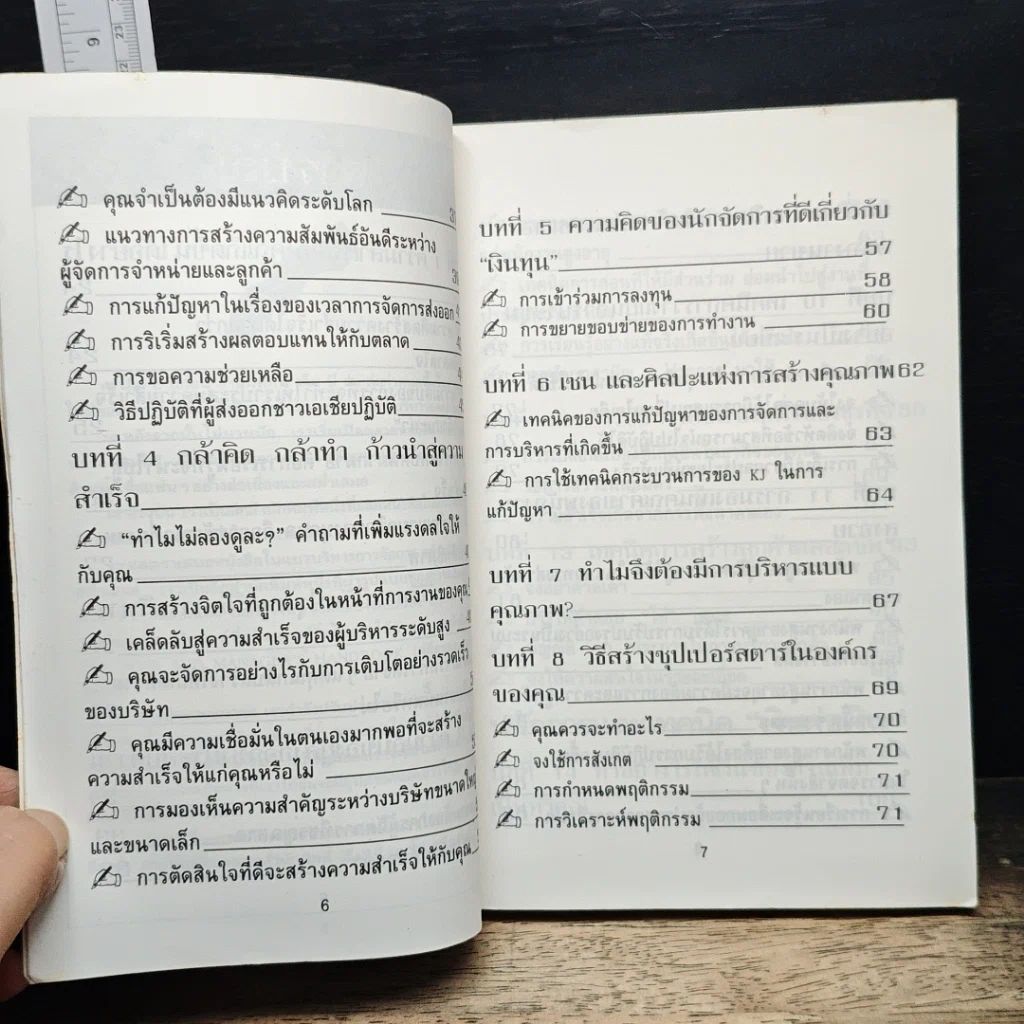 9
23
22
คุณจำเป็นต้องมีแนวคิดระดับโลก
แนวทางการสร้างความสัมพันธ์อันดีระหว่าง
ผู้จัดการจำหน่ายและลูกค้า
การแก้ปัญหาในเรื่องของเวลาการจัดการส่งออก
การริเริ่มสร้างผลตอบแทนให้กับตลาด
การขอความช่วยเหลือ
วิธีปฏิบัติที่ผู้ส่งออกชาวเอเชียปฏิบัติ
บทที่ 4 กล้าคิด กล้าทำ ก้าวนำสู่ความ
สำเร็จ
“ทำไมไม่ลองดูละ?” คำถามที่เพิ่มแรงดลใจให้
กับคุณ
การสร้างจิตใจที่ถูกต้องในหน้าที่การงานของคุณ
เคล็ดลับสู่ความสำเร็จของผู้บริหารระดับสูง
คุณจะจัดการอย่างไรกับการเติบโตอย่างรวดเร็ว
ของบริษัท
คุณมีความเชื่อมั่นในตนเองมากพอที่จะสร้าง
ความสำเร็จให้แก่คุณหรือไม่
การมองเห็นความสำคัญระหว่างบริษัทขนาดใหญ่
และขนาดเล็ก
การตัดสินใจที่ดีจะสร้างความสำเร็จให้กับคุณ
6
บทที่ 5 ความคิดของนักจัดการที่ดีเกี่ยวกับ
“เงินทุน” 57
การเข้าร่วมการลงทุน 58
การขยายขอบข่ายของการทำงาน 60
บทที่ 6 เซน และศิลปะแห่งการสร้างคุณภาพ 62
เทคนิคของการแก้ปัญหาของการจัดการและ
การบริหารที่เกิดขึ้น 63
การใช้เทคนิคกระบวนการของ KJ ในการ
แก้ปัญหา 64
บทที่ 7 ทำไมจึงต้องมีการบริหารแบบ
คุณภาพ? 67
บทที่ 8 วิธีสร้างซุปเปอร์สตาร์ในองค์กร
ของคุณ 69
คุณควรจะทำอะไร 70
จงใช้การสังเกต 70
การกำหนดพฤติกรรม 71
การวิเคราะห์พฤติกรรม 71
7